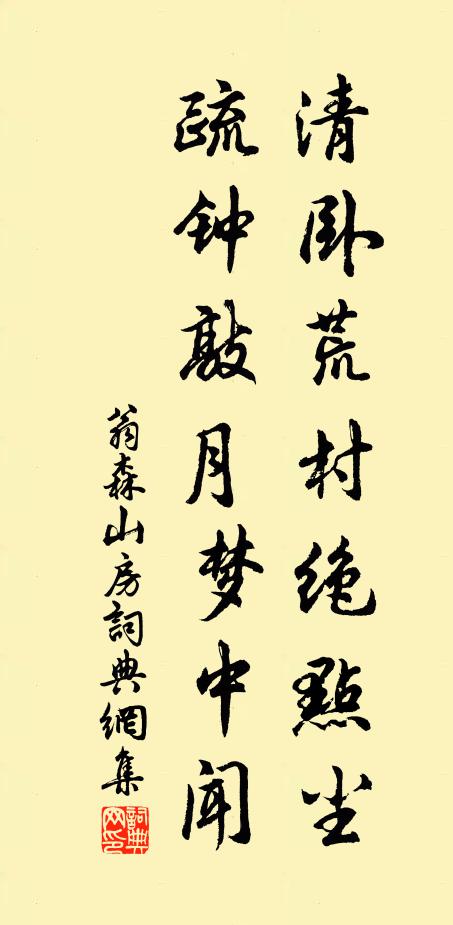 清卧荒村绝點尘
疏钟敲月梦中闻
翁森山房詞典網集
詞典网印